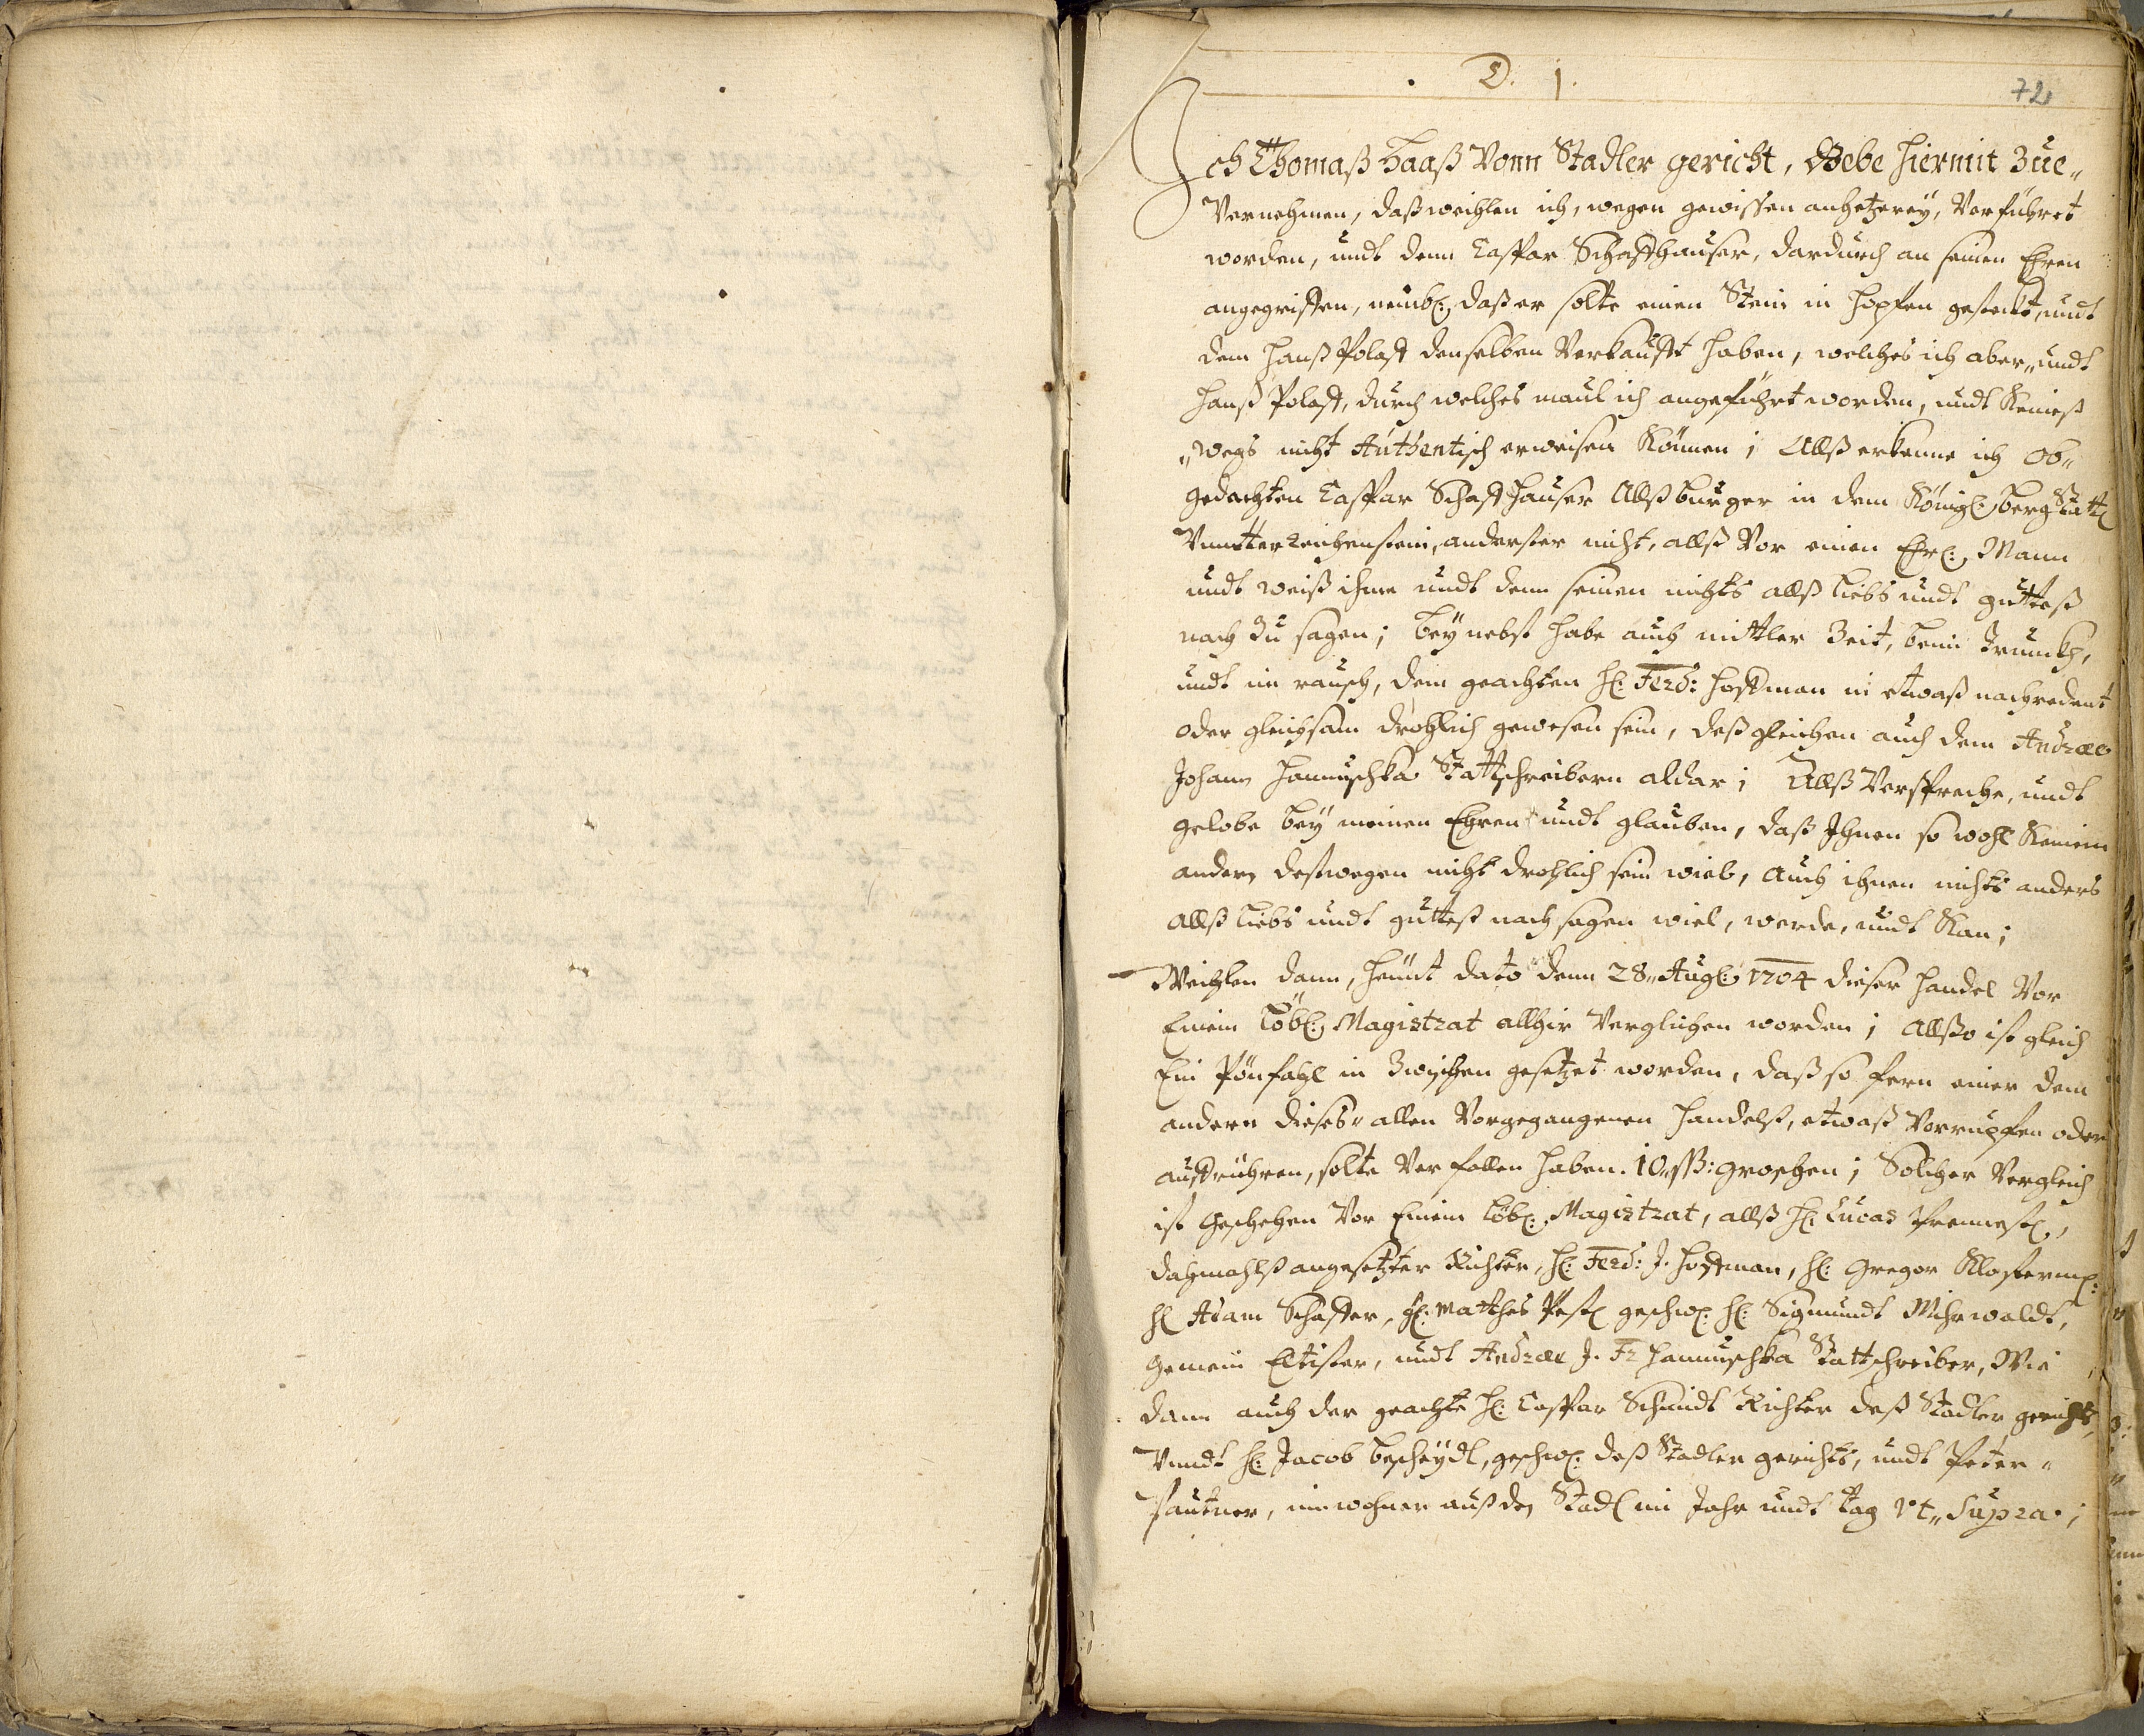 D. 1.
72
Ich Thomaß Haaß Vonn Stadler gericht, Gebe hiermit Zue„
Vernehmen, daß weihlen ich, wegen gewissen anhetzereÿ, Verführet
worden, undt denn Caspar Schaffhauser, dardurch an seinen Ehren
angegriffen, nembl: daß er solte einen Stein in Hopfen gestekt, undt
dem Hanß Polast denselben Verkaufft haben, welches ich aber„ undt
Hanß Polast, durch welches maul ich angeführt worden, undt Keineß
„wegs nicht Authentisch erweisen Können; Allß erkenne ich Ob„
gedachten Caspar Schaffhauser Allß burger in dem Königl: bergStattl
Vnntterreichenstein, anderster nicht, allß Vor einen Ehrl: Mann
undt weiß ihme undt denn seinen nichts allß Liebs undt guttes
nach Zu sagen; beÿ nebst habe auch mittler Zeit, beim Trunkh,
undt im rausch, dem geachten H: Ferd: Hoffman in etwaß nachredent
oder gleichsam drohlich gewesen sein, deßgleichen auch dem Andræ
Johann Hannuschka Stattschreibern aldar; Allß Verspreche, undt
gelobe beÿ meinen Ehren undt glauben, daß Ihnen so wohl Keinem
andern destwegen nicht drohlich sein wiel, auch ihnen nichts anders
allß Liebs undt guttes nach sagen wiel, werde, undt Kan;
Weihlen dann, heunt dato denn 28„ Aug: 1704 dieser Handel Vor
Einem Löbl: Magistrat allhir Verglichen worden; Allßo ist gleich
Ein Pönfahl in Zwischen gesetzet worden, daß so fern einer dem
andern dieses„ allen Vorgegangenen Handelß, etwaß Vorrupfen oder
auffrühren, solte Verfallen haben. 10 ß: groschen; Solcher Vergleich
ist Geschehen Vor Einem Löbl: Magistrat, allß H: Lucas
dahmahlß angesetzter Richter, H: Ferd: J. Hoffman, H: Gregor
H Adam Schaffer, H: Matthes geschw: H: Sigmundt Mihrwaldt,
Gemein Eltister, undt Andræ J. Fr Hannuschka Stattschreiber, Wie
dann auch der geachte H: Caspar Schmidt Richter deß Stadler gerichts,
Vundt H: Jacob bescheÿdl, geschw: deß Stadler gerichts, undt Peter„
Pautner, inwohner auß den Stadl im Jahr undt tag Vt„ Supra;